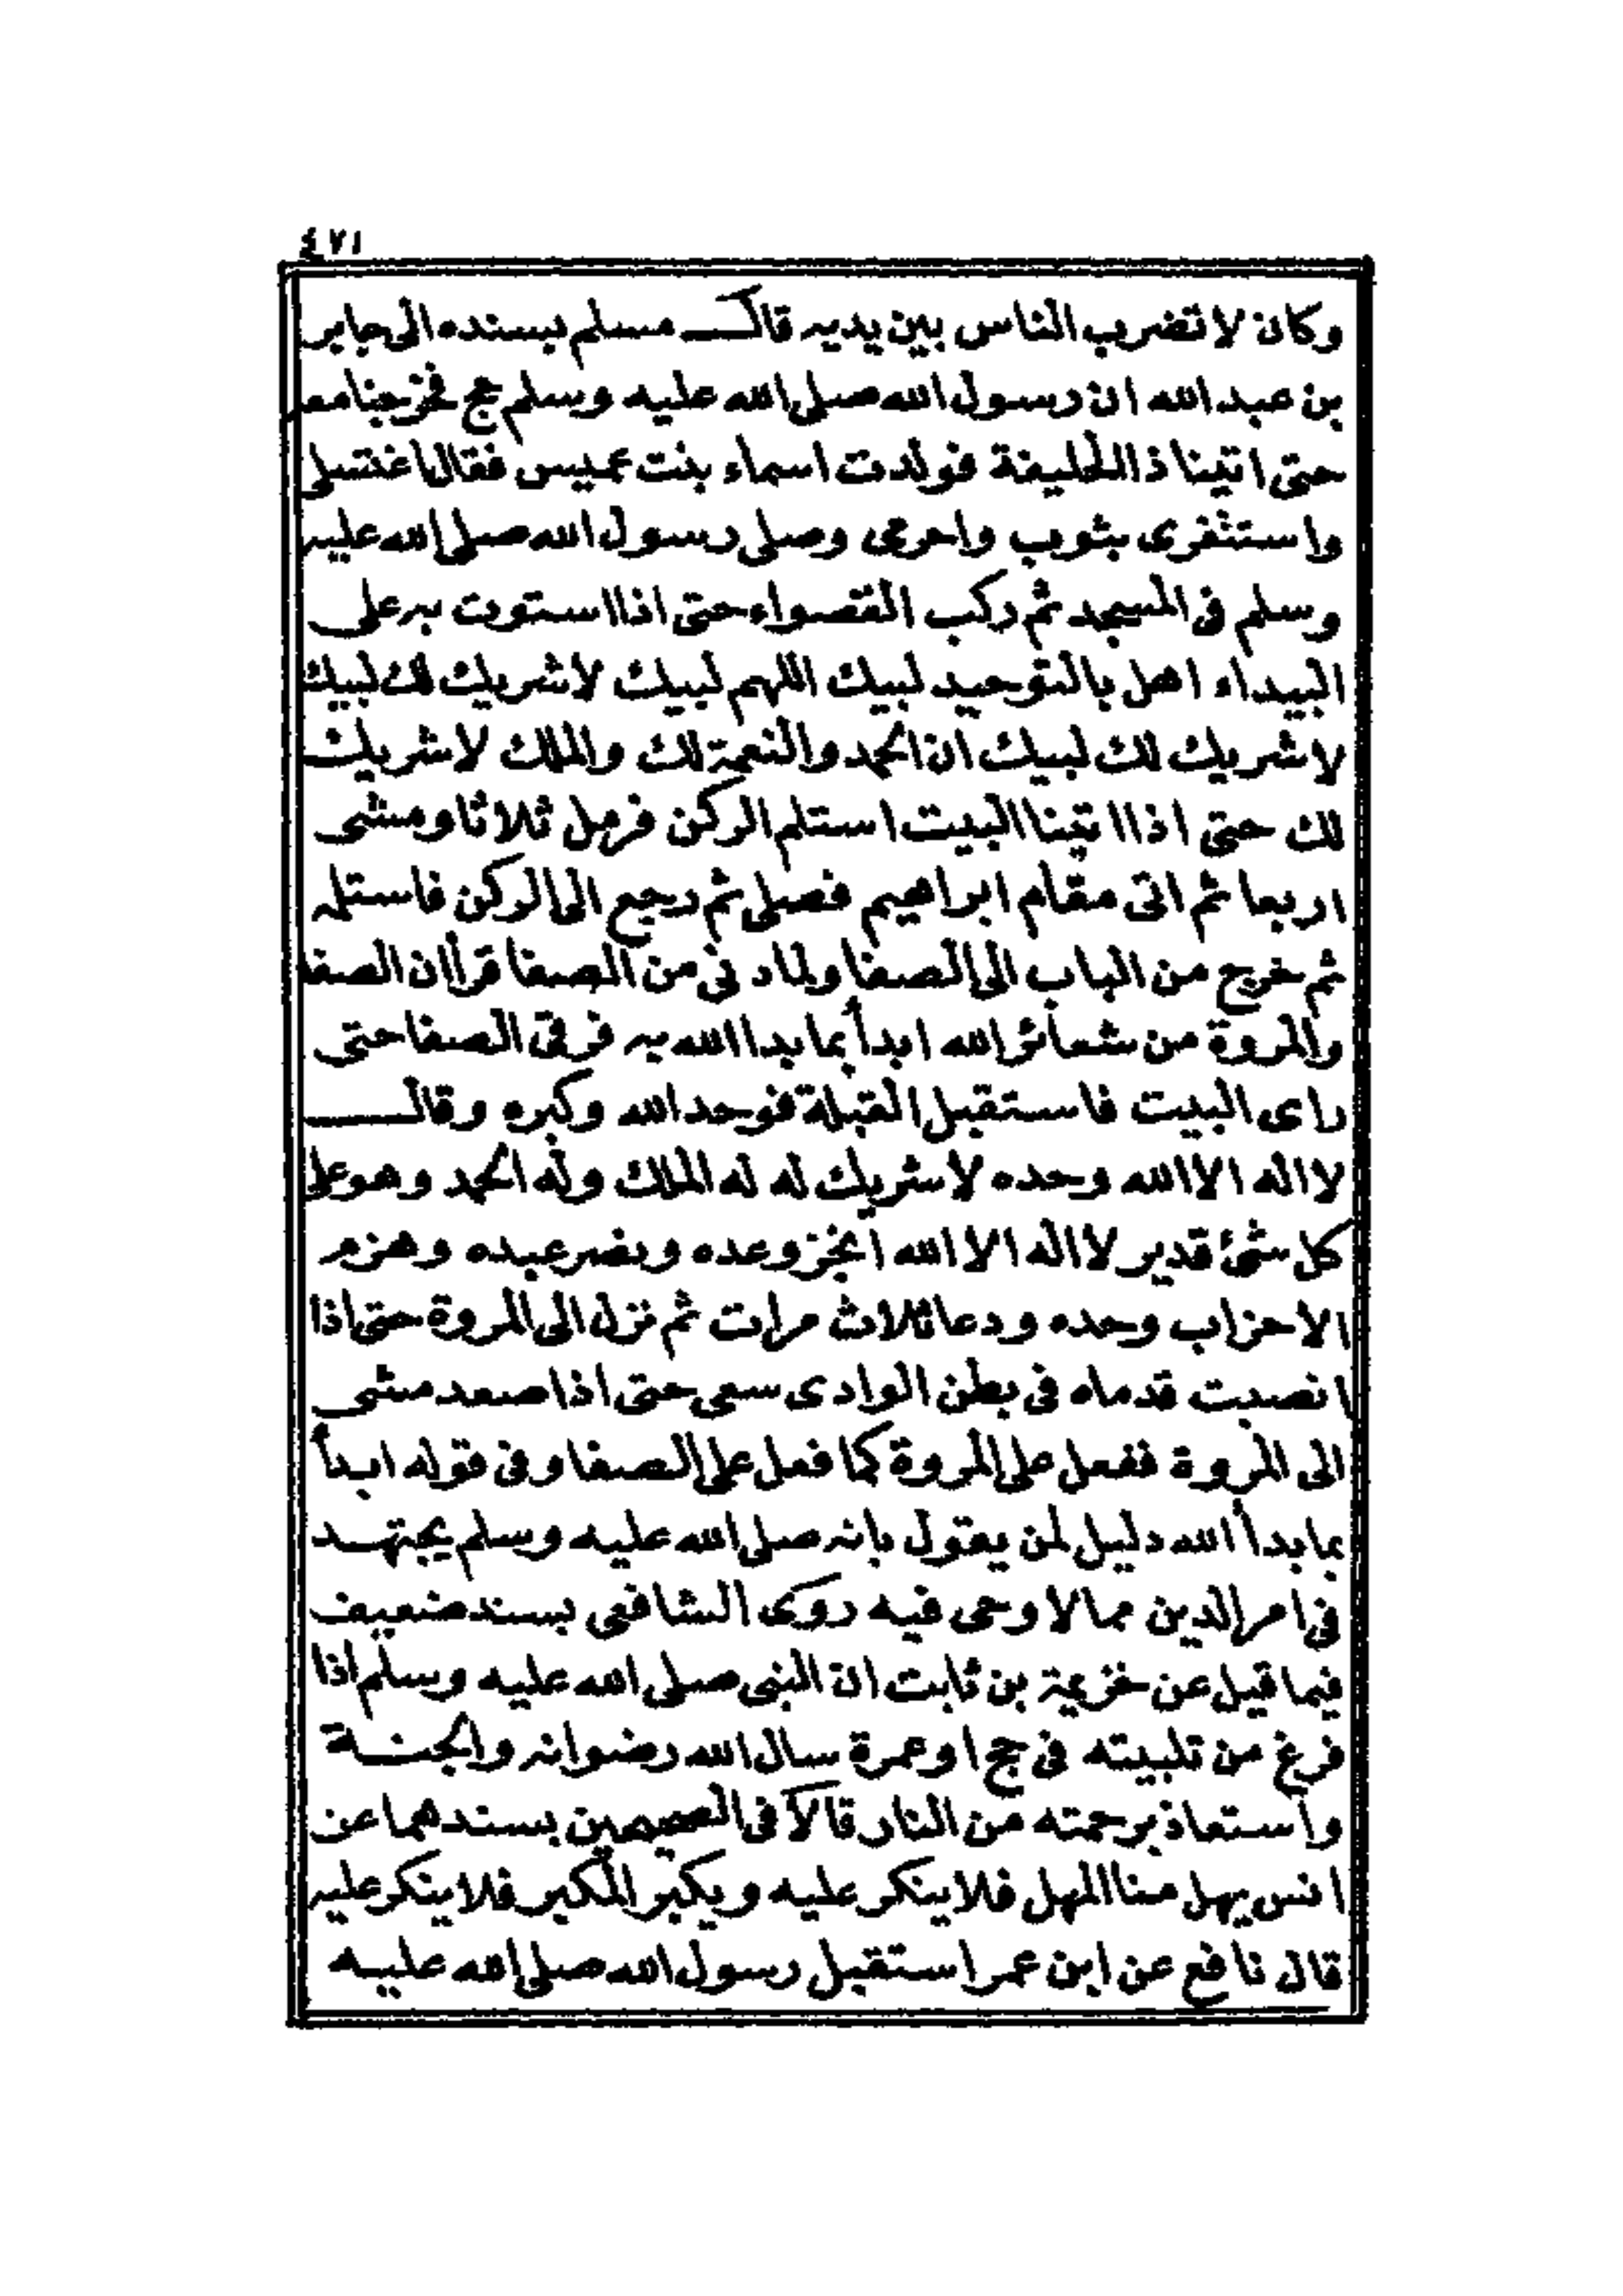 ٤٧١
وكان لا تضرب الناس بين يديه قال مسلم بسنده الى جابر
بن عبد الله ان رسول الله صلى الله عليه وسلم حج فخرجنا معه
حتى اتينا ذا الحليفة فولدت اسماء بنت عميس فقال اغتسلى
واستثفرى بثوب واحرمى وصلى رسول الله صلى الله عليه
وسلم فى المسجد ثم ركب القصواء حتى اذا استوت به على
البيداء اهل بالتوحيد لبيك اللهم لبيك لا شريك لك لبيك
لا شريك لك لبيك ان الحمد والنعمة لك والملك لا شريك
لك حتى اذا اتينا البيت استلم الركن فرمل ثلاثا ومشى
اربعا ثم اتى مقام ابراهيم فصلى ثم رجع الى الركن فاستلمه
ثم خرج من الباب الى الصفا ولما دنى من الصفا قرأ ان الصفا
والمروة من شعائر الله ابدأ بما بدا الله به فرقى الصفا حتى
راى البيت فاستقبل القبلة فوحد الله وكبره وقال
لا اله الا الله وحده لا شريك له له الملك وله الحمد وهو على
كل شئ قدير لا اله الا الله انجز وعده ونصر عبده وهزم
الاحزاب وحده ودعا ثلاث مرات ثم نزل الى المروة حتى اذا
انصبت قدماه فى بطن الوادى سعى حتى اذا صعد مشى
الى المروة ففعل على المروة كما فعل على الصفا وفى قوله ابدأ
بما بدأ الله دليل لمن يقول بانه صلى الله عليه وسلم يجتهد
فى امر الدين مما لا وحى فيه روى الشافعى بسند ضعيف
فيما قيل عن خزيمة بن ثابت ان النبى صلى الله عليه وسلم اذا
فرغ من تلبيته فى حج او عمرة سال الله رضوانه والجنة
واستعاذ برحمته من النار قالا فى الصحيحين بسندهما عن
انس يهل منا المهل فلا ينكر عليه ويكبر المكبر فلا ينكر عليه
قال نافع عن ابن عمر استقبل رسول الله صلى الله عليه